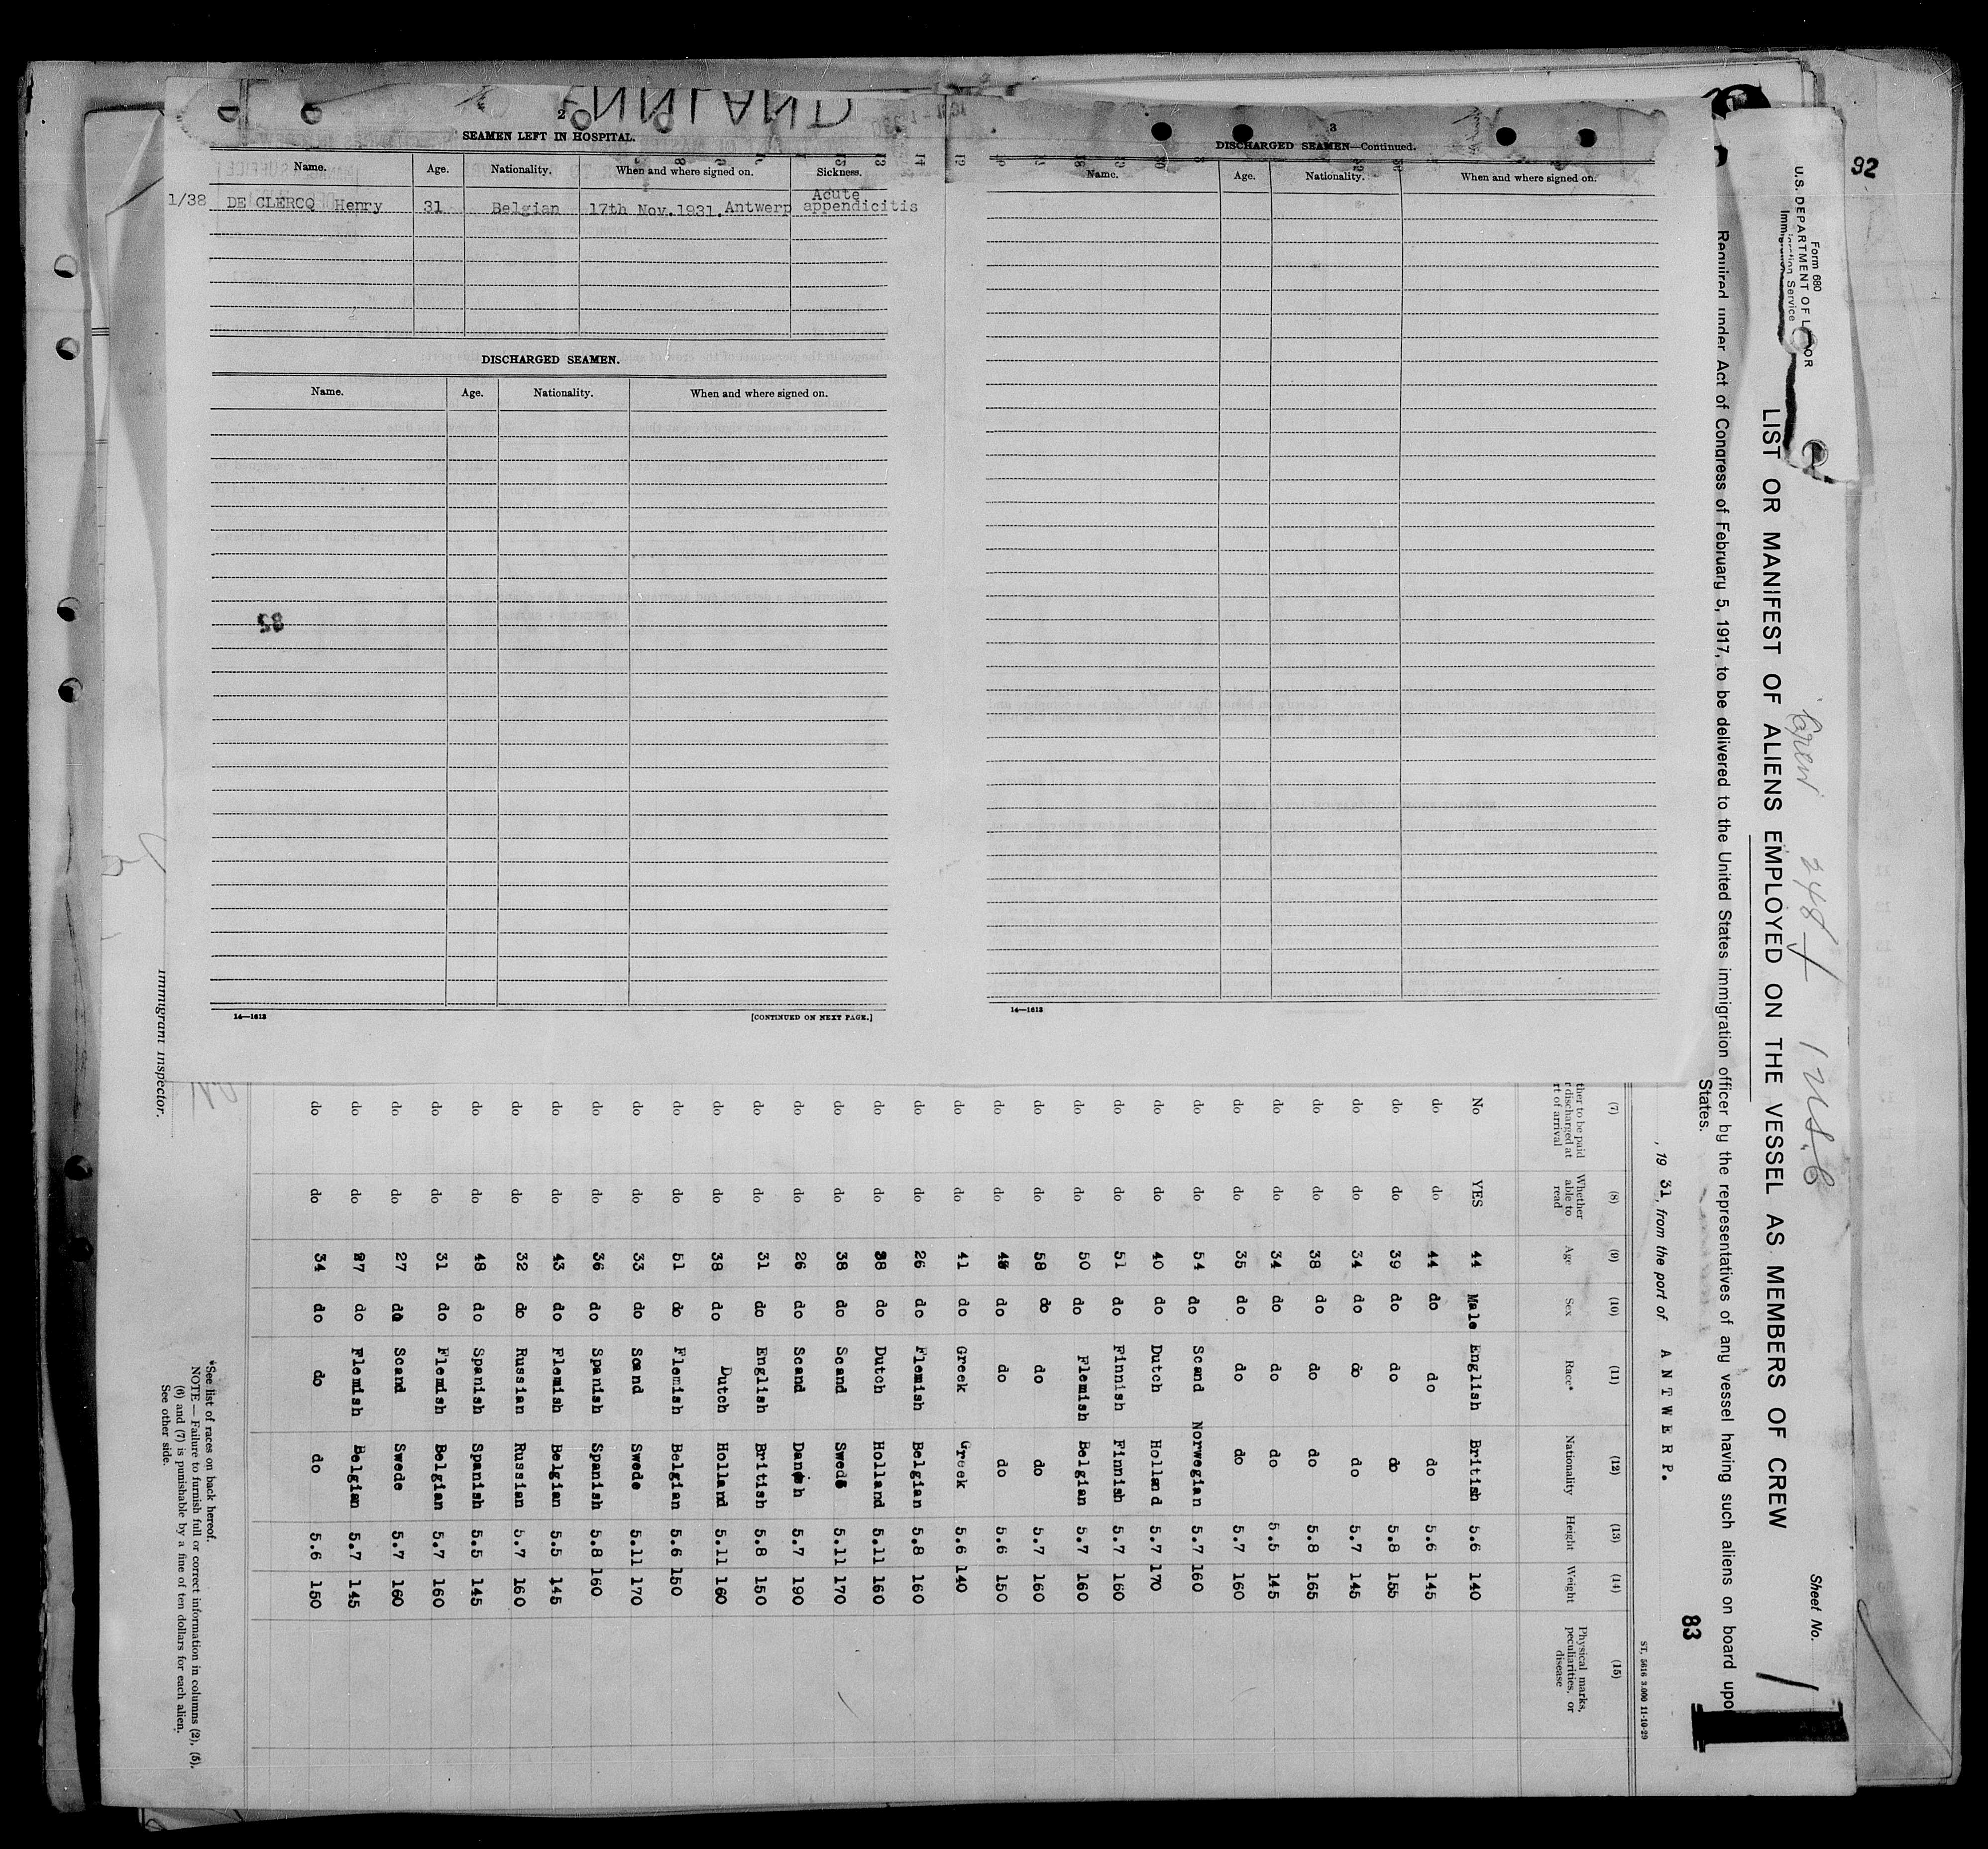 2
SEAMEN LEFT IN HOSPITAL.
Name. Age. Nationality. When and where signed on. Sickness.
1/38 DE CLERCQ Henry 31 Belgian 17th Nov.1931. Antwerp Acute appendicitis
DISCHARGED SEAMEN.
Name. Age. Nationality. When and where signed on.
83
14—1613 [CONTINUED ON NEXT PAGE.]
3
DISCHARGED SEAMEN—Continued.
Name. Age. Nationality. When and where signed on.
14—1613
92
Form 680
U.S. DEPARTMENT OF LABOR
Immigration Service
Crew 248 + 1 U.S.C
Sheet No. 1
LIST OR MANIFEST OF ALIENS EMPLOYED ON THE VESSEL AS MEMBERS OF CREW
Required under Act of Congress of February 5, 1917, to be delivered to the United States immigration officer by the representatives of any vessel having such aliens on board upo
States.
83
, 19 31, from the port of ANTWERP.
ST. 5616 3.000 11-10-29
(7) (8) (9) (10) (11) (12) (13) (14) (15)
ther to be paid r discharged at rt of arrival Whether able to read Age Sex Race* Nationality Height Weight Physical marks, peculiarities, or disease
No YES 44 Male English British 5.6 140
do do 44 do do do 5.6 145
do do 39 do do do 5.8 155
do do 34 do do do 5.7 145
do do 38 do do do 5.8 165
do do 34 do do do 5.5 145
do do 35 do do do 5.7 160
do do 54 do Scand Norwegian 5.7 160
do do 40 do Dutch Holland 5.7 170
do do 51 do Finnish Finnish 5.7 160
do do 50 do Flemish Belgian 5.7 160
do do 58 do do do 5.7 160
do do do do do 5.6 150
do do 41 do Greek Greek 5.6 140
do do 26 do Flemish Belgian 5.8 160
do do 38 do Dutch Holland 5.11 160
do do 38 do Scand Swede 5.11 170
do do 26 do Scand Danish 5.7 190
do do 31 do English British 5.8 150
do do 38 do Dutch Holland 5.11 160
do do 51 do Flemish Belgian 5.6 150
do do 33 do Scand Swede 5.11 170
do do 36 do Spanish Spanish 5.8 160
do do 43 do Flemish Belgian 5.5 145
do do 32 do Russian Russian 5.7 160
do do 48 do Spanish Spanish 5.5 145
do do 31 do Flemish Belgian 5.7 160
do do 27 do Scand Swede 5.7 160
do do 27 do Flemish Belgian 5.7 145
do do 34 do do do 5.6 150
*See list of races on back hereof.
NOTE — Failure to furnish full or correct information in columns (2), (5),
(6) and (7) is punishable by a fine of ten dollars for each alien.
See other side.
Immigrant Inspector.